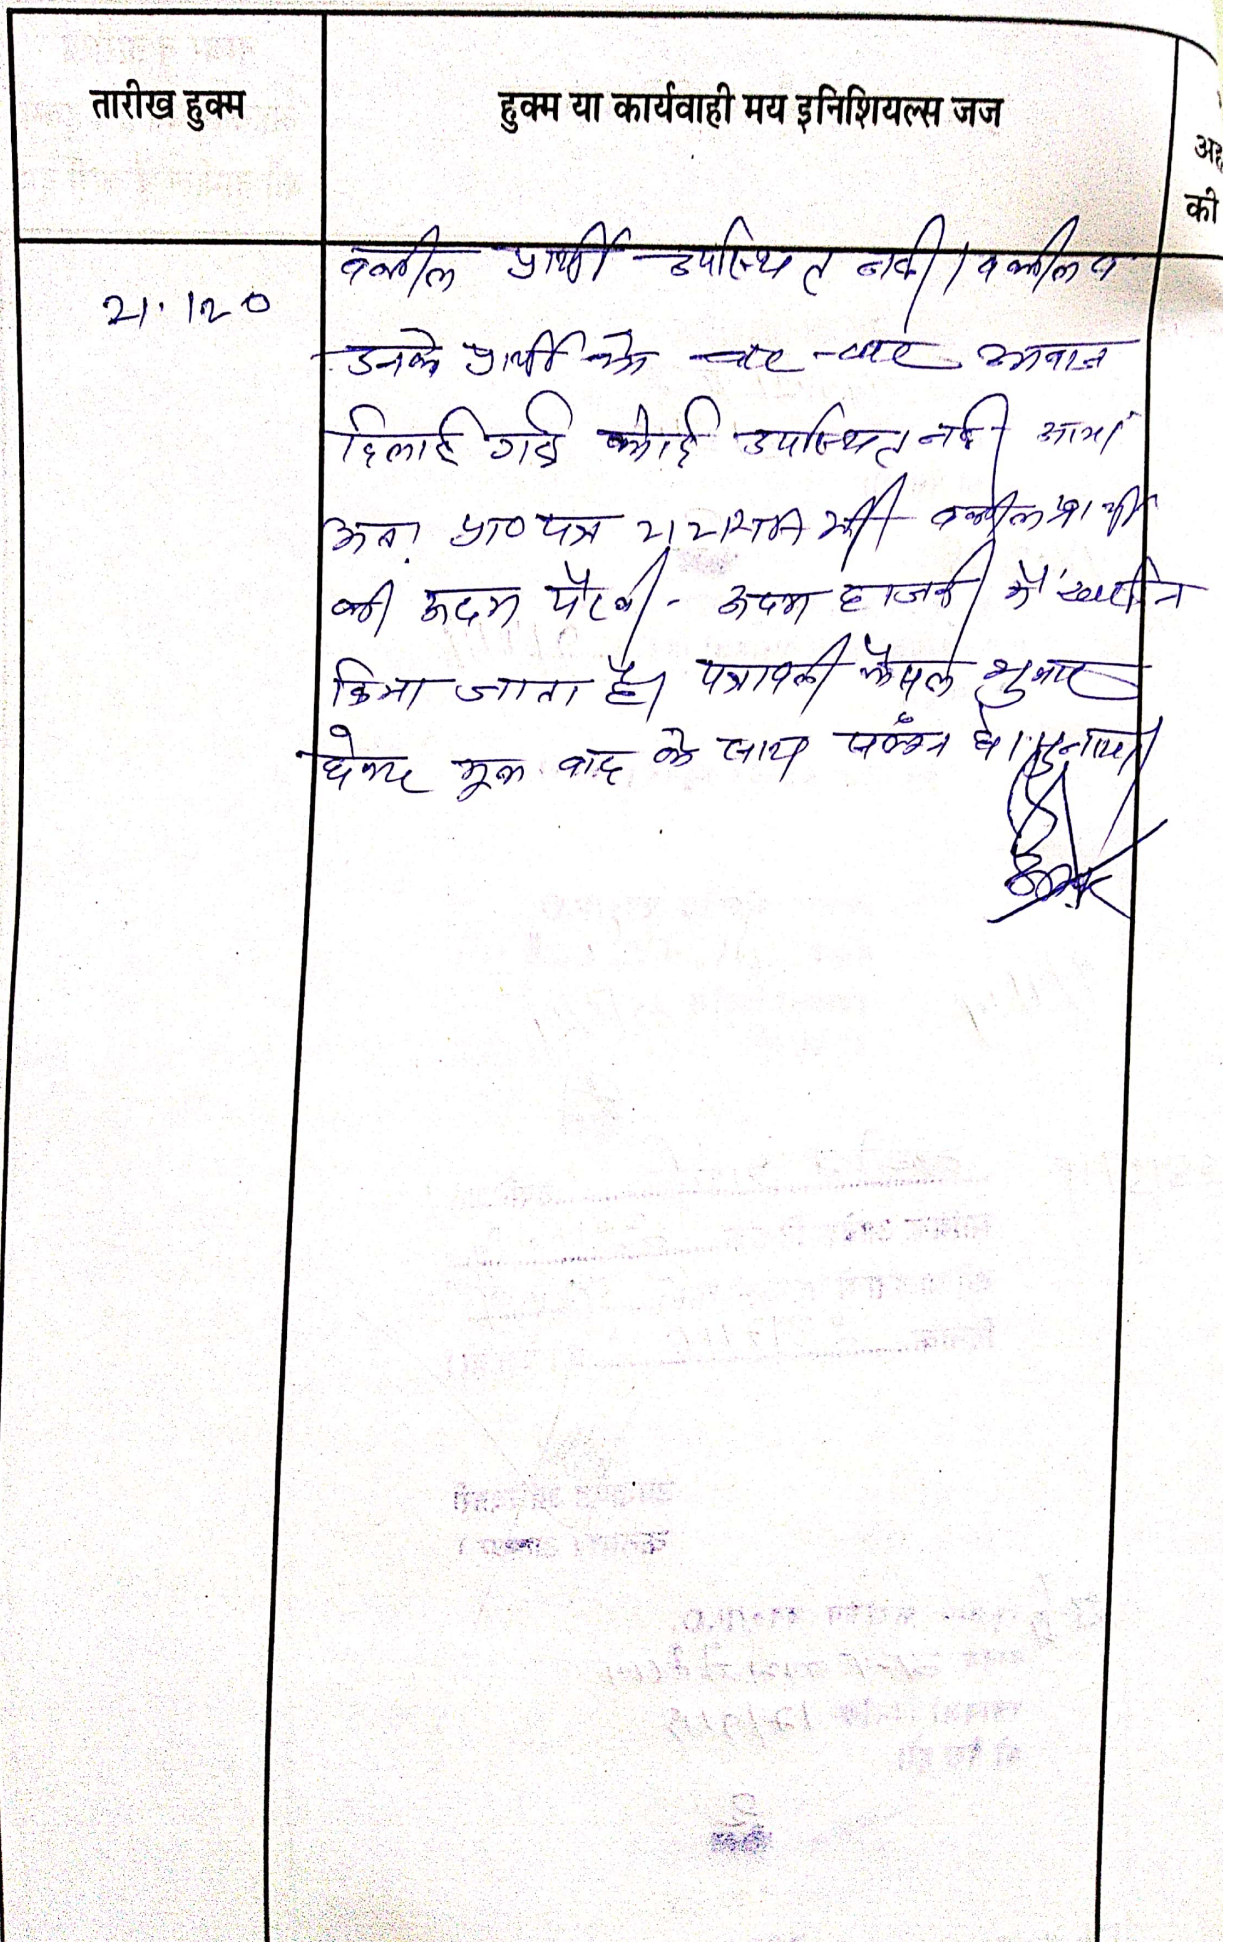 तारीख हुक्म
हुक्म या कार्यवाही मय इनिशियल्स जज
की
21.1.20
वकील प्रार्थी उपस्थित नही। वकील व
उनके प्रार्थी को बार-बार आवाज
दिलाई गई कोई उपस्थित नही आया
अतः प्रा० पत्र वकील प्रार्थी
की अदम पैरवी - अदम हाजरी मे खारीज
किया जाता है। पत्रावली फैसल शुमार
होकर मूल वाद के साथ संलग्न हो।